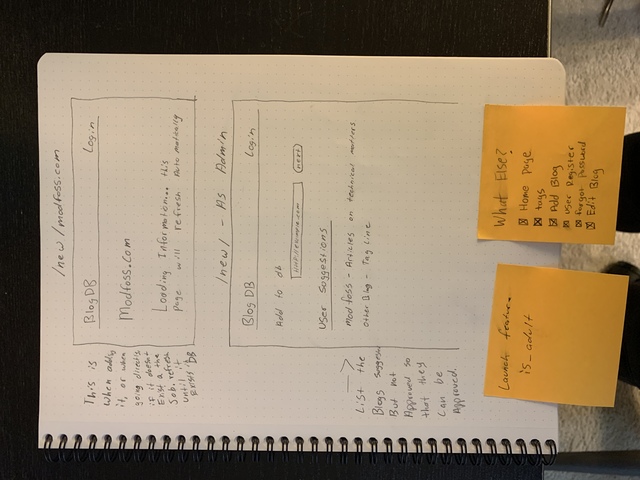 /new/modfoss.com
BlogDB Login
Modfoss.com
Loading Information... this
page will refresh Automatically
This is
when adding
it, or when
going directly
if it doesnt
Exist a the
Job, refresh
until it
Exist DB
/new/ - As Admin
BlogDB Login
Add to db
next
User Suggestions
modfoss - Articles on technical matters
Other Blog - Tag Line
-->
List the
Blogs suggest
But not
Approved so
that they
can be
Approved.
What Else?
☒ Home page
☒ tags
☒ Add Blog
☒ User Register
☒ Forgot password
☒ Edit Blog
Launch feature
is_adult